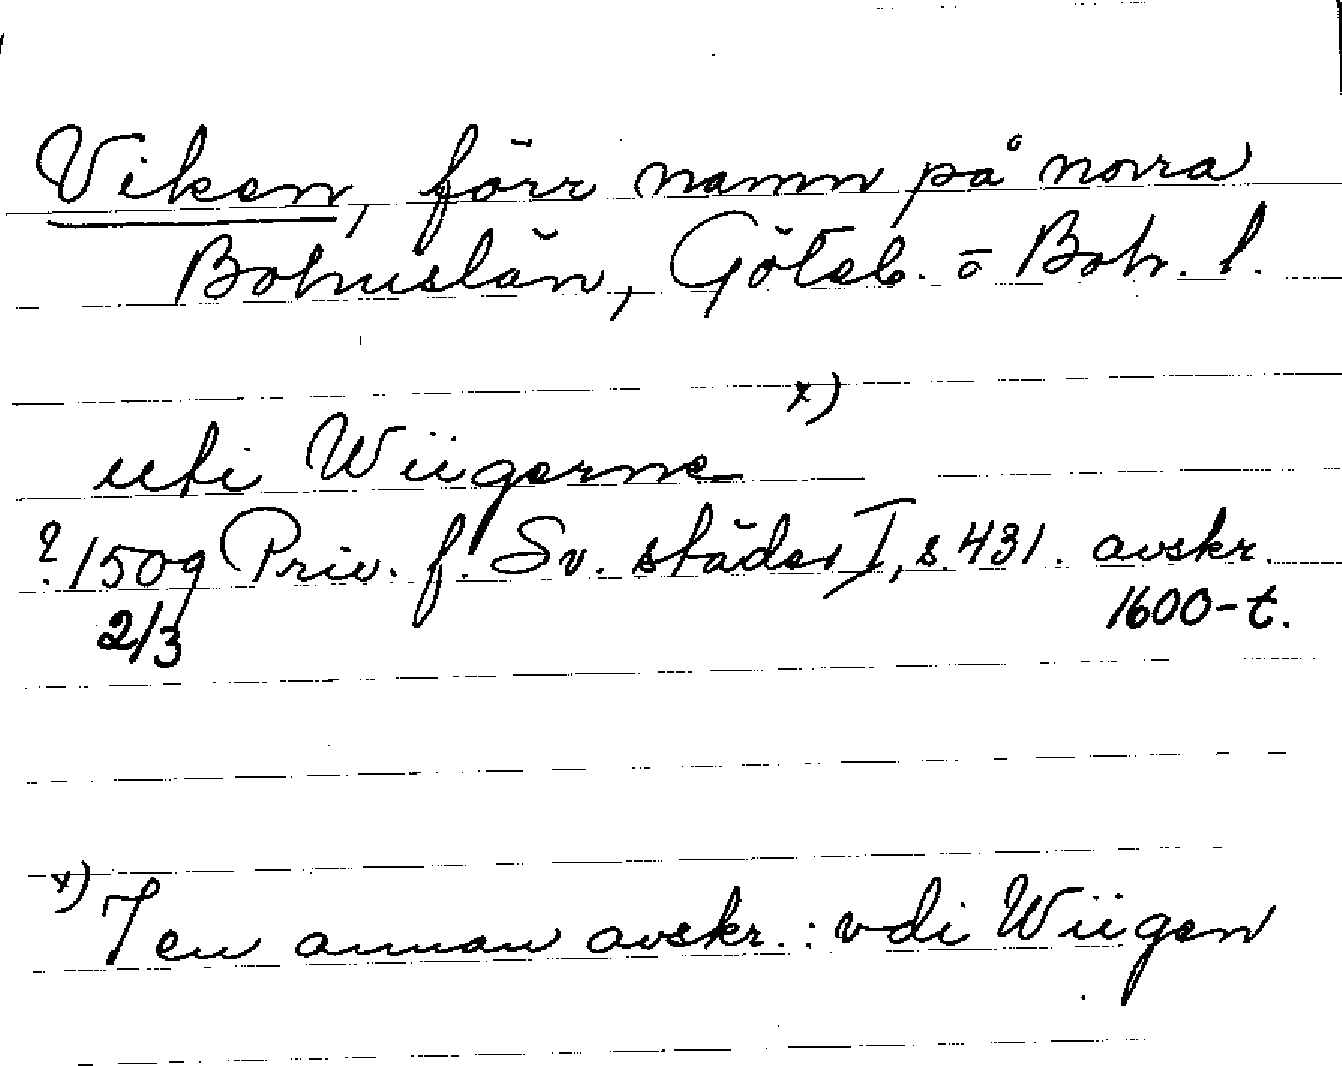 Viken, förr namn på norra
Bohuslän, Göteb. o Boh. l.
uti Wiigerne x)
? 1509 Priv. f. Sv. städer I, s. 431. avskr.
2/3 1600-t.
x) I en annan avskr.: vdi Wiigen